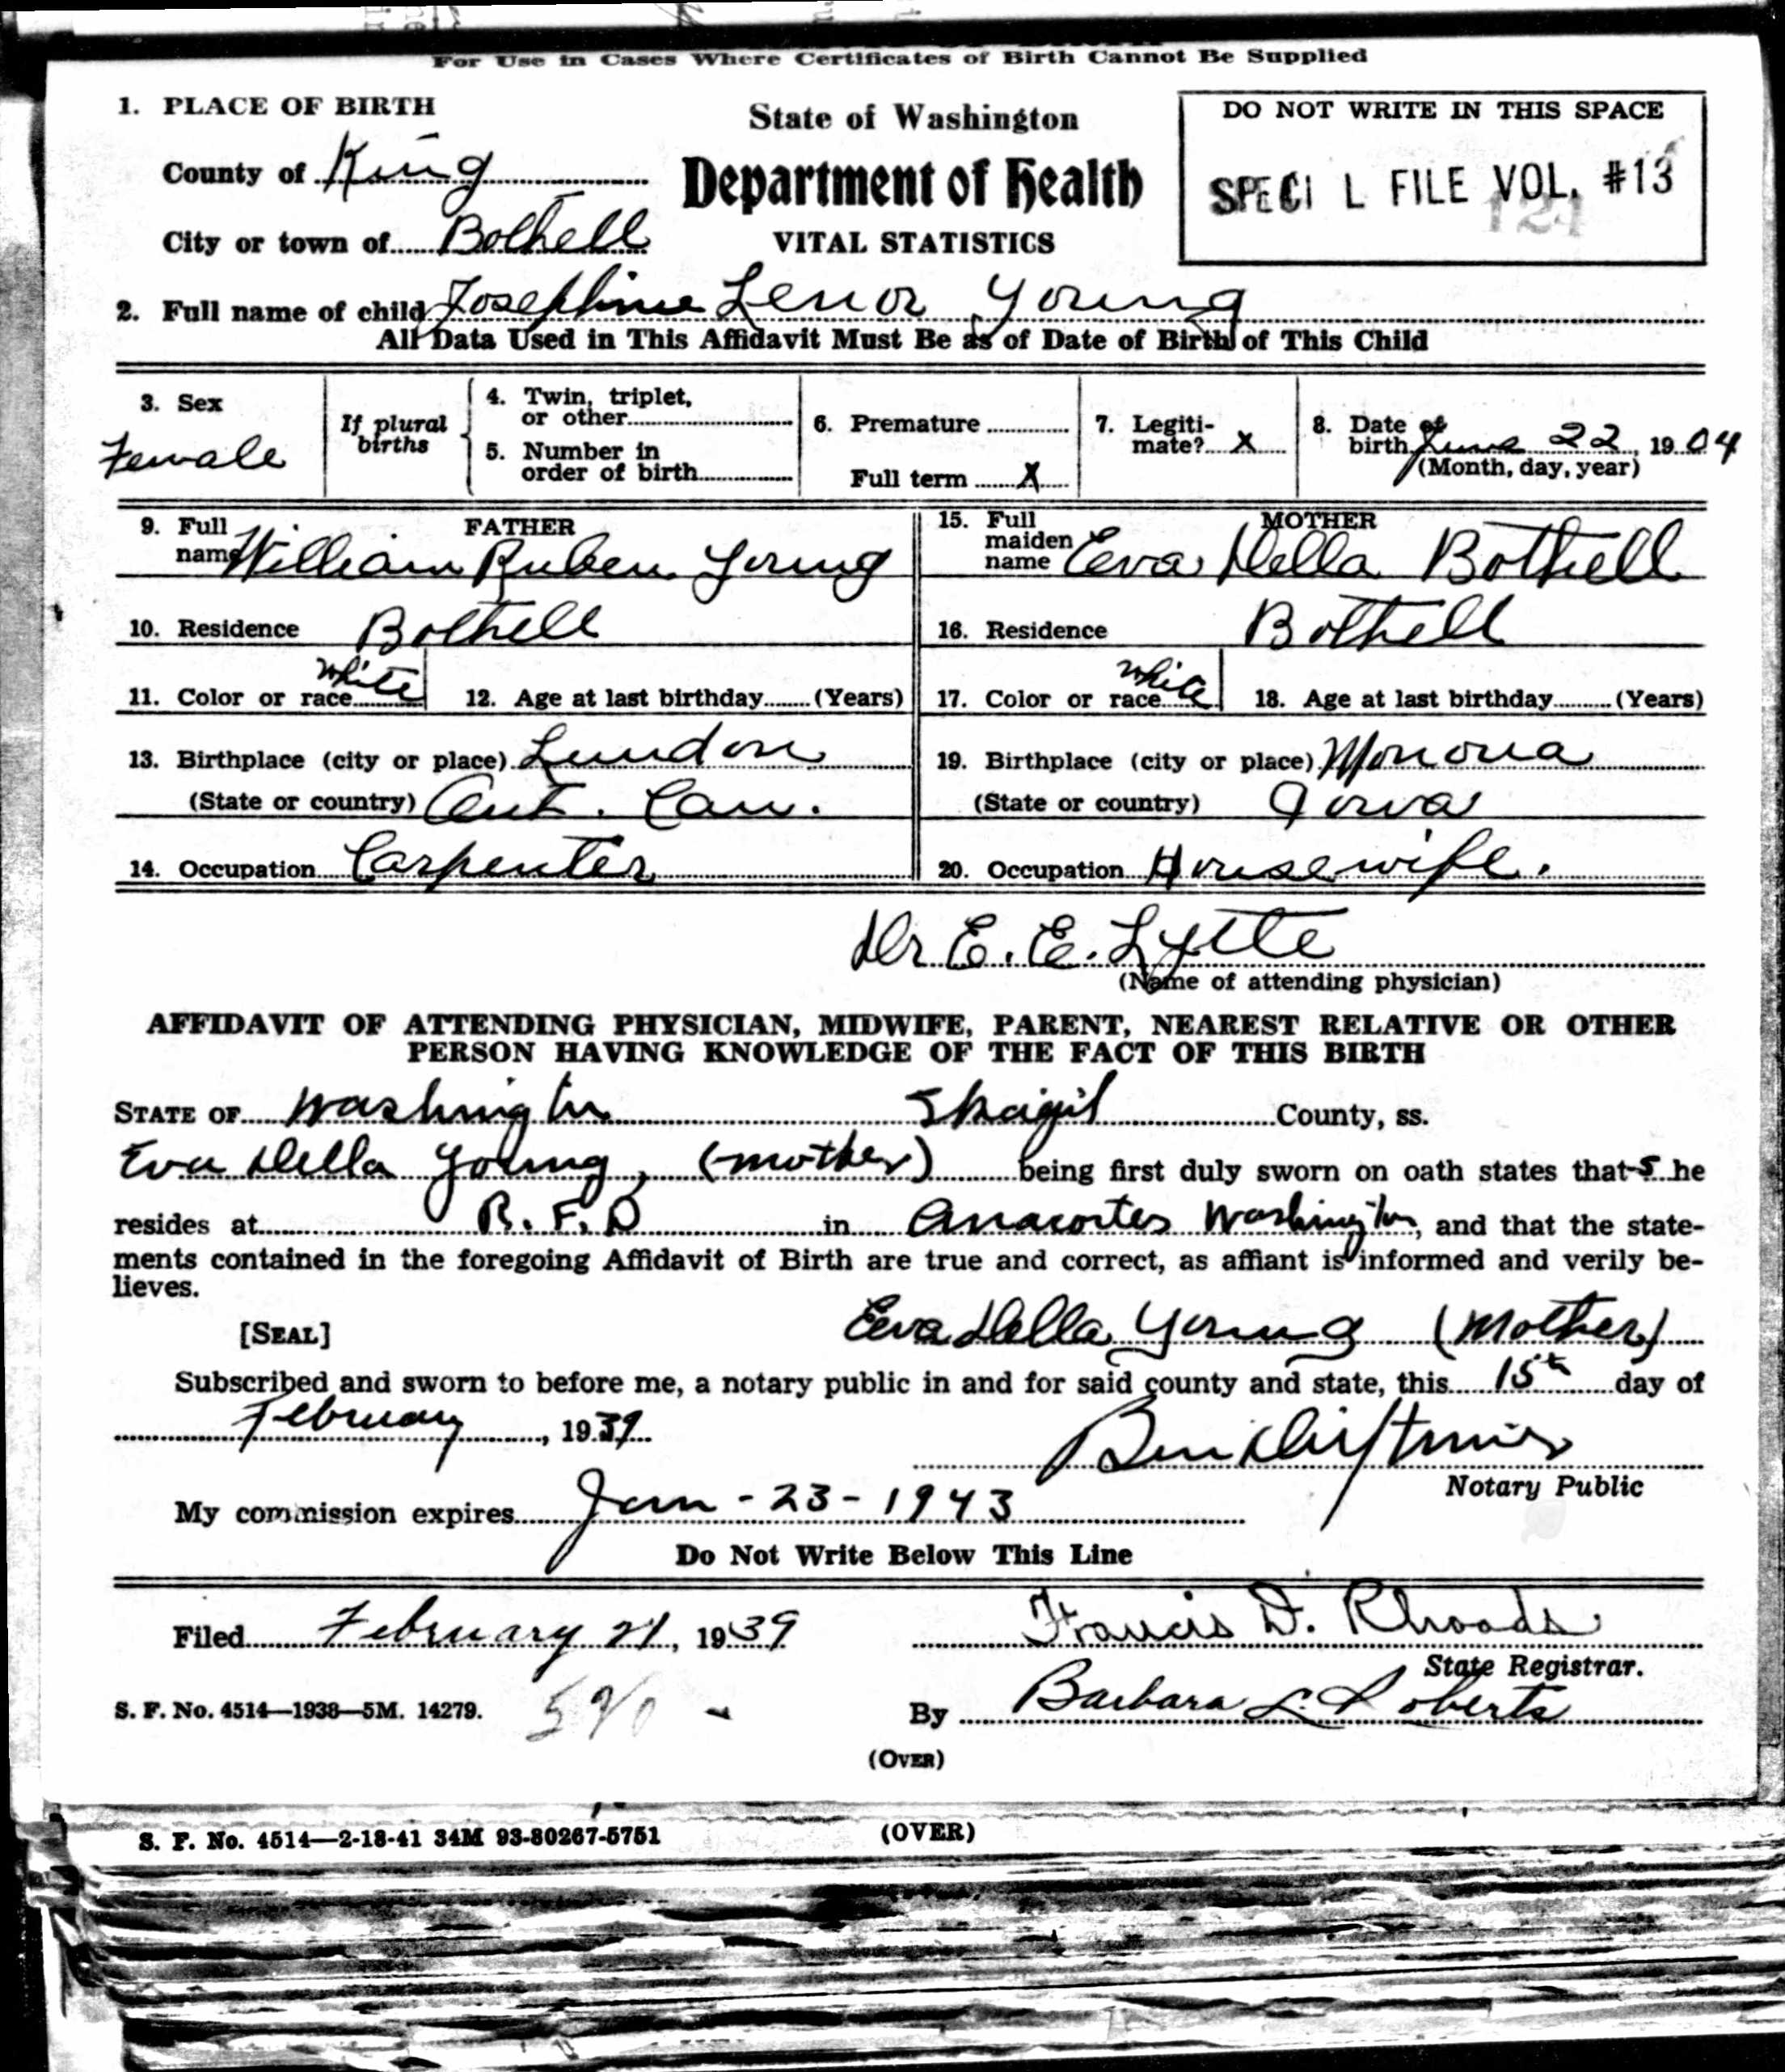 For Use in Cases Where Certificates of Birth Cannot Be Supplied
1. PLACE OF BIRTH
State of Washington
DO NOT WRITE IN THIS SPACE
County of King
Department of Health
SPECI L FILE VOL. #13
121
City or town of Bothell
VITAL STATISTICS
2. Full name of child Josephine Lenor Young
All Data Used in This Affidavit Must Be as of Date of Birth of This Child
3. Sex Female
If plural births
4. Twin, triplet, or other
5. Number in order of birth
6. Premature
Full term X
7. Legitimate? X
8. Date of birth June 22, 1904
(Month, day, year)
FATHER
9. Full name William Ruben Young
10. Residence Bothell
11. Color or race White 12. Age at last birthday (Years)
13. Birthplace (city or place) Lundon
(State or country) Ont. Can.
14. Occupation Carpenter
MOTHER
15. Full maiden name Eva Della Bothell
16. Residence Bothell
17. Color or race White 18. Age at last birthday (Years)
19. Birthplace (city or place) Monona
(State or country) Iowa
20. Occupation Housewife.
Dr E. E. Lytte
(Name of attending physician)
AFFIDAVIT OF ATTENDING PHYSICIAN, MIDWIFE, PARENT, NEAREST RELATIVE OR OTHER
PERSON HAVING KNOWLEDGE OF THE FACT OF THIS BIRTH
STATE OF Washington Skagit County, ss.
Eva Della Young, (mother) being first duly sworn on oath states that s he
resides at R.F.D in Anacortes Washington, and that the state-
ments contained in the foregoing Affidavit of Birth are true and correct, as affiant is informed and verily be-
lieves.
Eva Della Young (Mother)
[SEAL]
Subscribed and sworn to before me, a notary public in and for said county and state, this 15th day of
February, 1939
Ben
Notary Public
My commission expires Jan-23-1943
Do Not Write Below This Line
Filed February 21, 1939
Francis D. Rhoads
State Registrar.
S. F. No. 4514—1938—5M. 14279.
By Barbara L. Roberts
(OVER)
S. F. No. 4514—2-18-41 34M 93-80267-5751 (OVER)